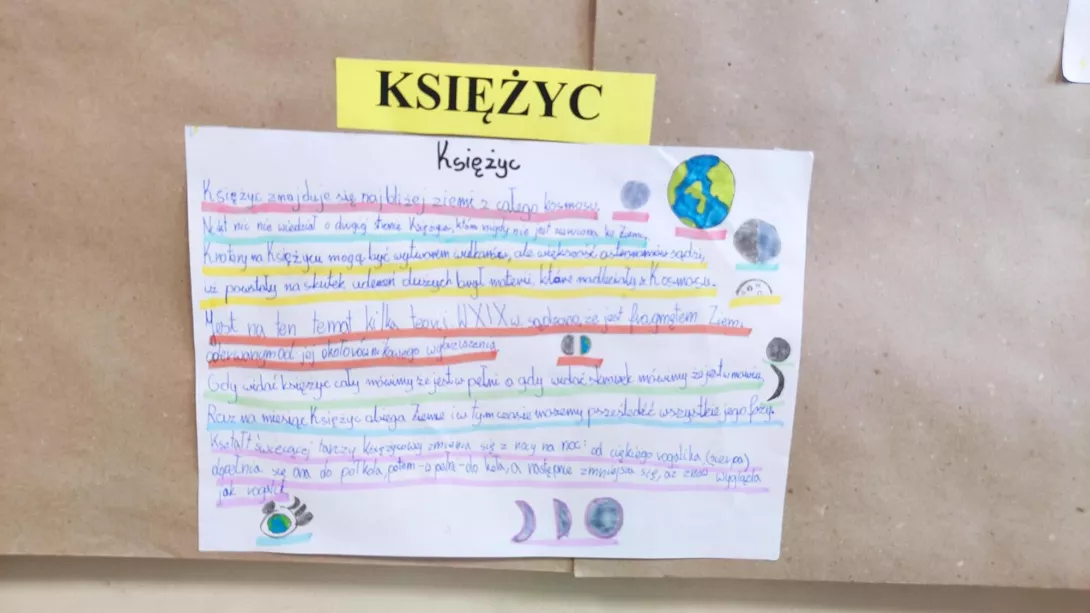 KSIĘŻYC
Księżyc
Księżyc znajduje się najbliżej ziemi z całego kosmosu.
Nikt nic nie wiedział o drugiej stronie Księżyca, która nigdy nie jest zwrócona ku Ziemi.
Kratery na Księżycu mogą być wytworem wulkanów, ale większość astronomów sądzi,
iż powstały na skutek uderzeń dużych brył materii, które nadleciały z Kosmosu.
Jest na ten temat kilka teorii W XIX w. sądzono, że jest fragmętem Ziemi,
oderwanym od jej okołorównikowego wybrzuszenia
Gdy widać księżyc cały mówimy że jest w pełni a gdy widać skrawek mówimy że jest w nowiu,
Raz na miesiąc Księżyc obiega Ziemie i w tym czasie możemy prześledzić wszystkie jego fazy.
Kształt świecącej tarczy księżycowej zmienia się z nocy na noc: od cienkiego rogalika (sierpa)
dopełnia się ona do półkola, potem - a pełni - do koła, a następnie zmniejsza się, aż znów wygląda
jak rogalik